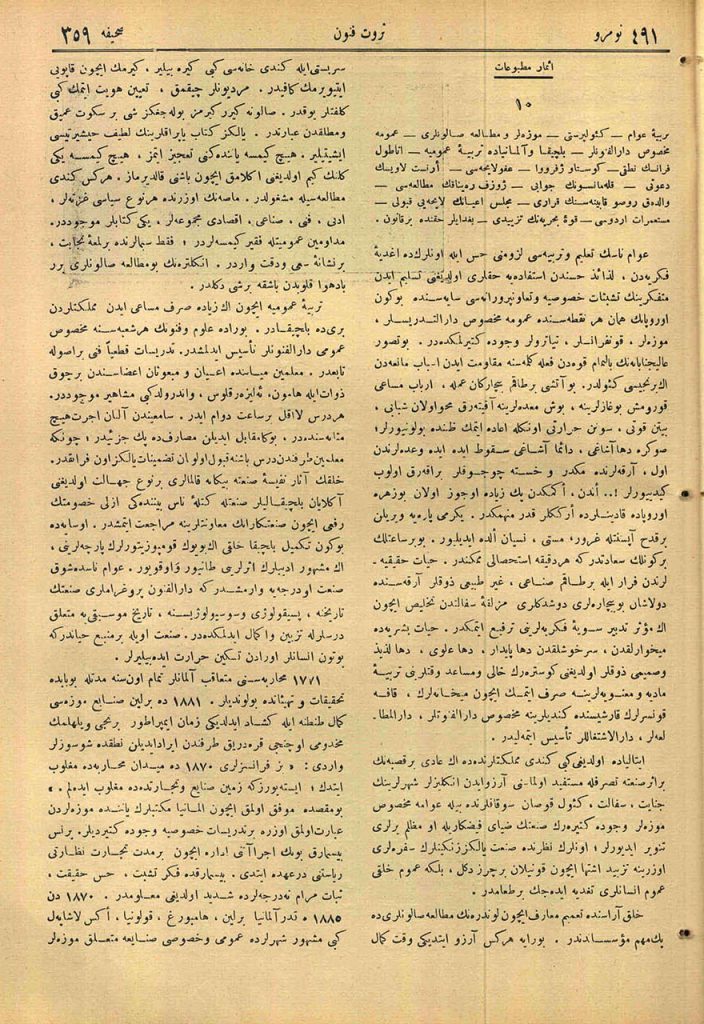 ٤٩١ نومرو
ثروت فنون
صحیفه ٣٥٩
اثمار مطبوعات
١٠
تربیهٔ عوام — كئولپرستی — موزه‌لر و مطالعه صالونلری — عمومه
مخصوص دارالفنونلر — بلچیقا وآلمانیاده تربیهٔ عمومیه — اناطول
فرانسك نطقی — كوستاو ژفروا — عفو لایحه‌سی — أرنست لاویسك
دعوتی — قله‌مانسونك جوابی — ژوزف ره‌یناقك مطالعه‌سی —
والده‌ق روسو قابینه‌سنك قراری — مجلس اعیانك لایحه‌یی قبولی —
مستعمرات اردوسی — قوهٔ بحریه‌نك تزییدی — بغدایلر حقنده برقانون .
عوام ناسك تعلیم و تربیه‌سی لزومنی حس ایله اونلركده اغدیهٔ
فكریه‌دن ، لذائذ حسندن استفاده‌یه حقلری اولدیغنی تسلیم ایدن
متفكرینك تشبثات خصوصیه وتعاونپرورانه‌سی سایه‌سنده بوكون
اوروپانك همان هر نقطه‌سنده عمومه مخصوص دارالتدریسلر ،
موزه‌لر ، قونفرانسلر ، تیاترولر وجوده كتیرلمكده‌در . بوتصور
عالیجنابانه‌نك بالتمام قوه‌دن فعله كلمه‌سنه مقاومت ایدن اسباب مانعه‌دن
اك برنجیسی كئولدر. بوآتشی برطاقم بیچاركان عمله ، ارباب مساعی
قورومش بوغازلرینه ، بوش معده‌لرینه آقیته‌رق محو اولان شبابی ،
بیتن قوتی ، سونن حرارتی اونكله اعاده ایتمك ظننده بولونیورلر ؛
صوكره دها آشاغی ، دائما آشاغی سقوط ایده ایده وعده‌لرندن
اول ، آرقه‌لرنده مكدر و خسته چوجوقلر براقه‌رق اولوب
كیدییورلر !.. أتدن ، أكمكدن پك زیاده اوجوز اولان بوزهره
اوروپاده قادینلرده أرككلر قدر منهمكدر . یكرمی پاره‌یه ویریلن
برقدح آبسنتله غرور، مستی ، نسیان ألده ایدیلیور . بوبرساعتلك
بركونلك سعادتدركه هردقیقه استحصالی ممكندر . حیات حقیقیه ـ
لرندن فرار ایله برطاقم صناعی ، غیر طبیعی ذوقلر آرقه‌سنده
دولاشان بوبیچاره‌لری دوشدكلری مزلقهٔ سفالتدن تخلیص ایچون
اك مؤثر تدبیر سویهٔ فكریه‌لرینی ترفیع ایتمكدر . حیات بشریه‌ده
میخوارلقدن ، سرخوشلقدن دها پایدار ، دها علوی ، دها لذیذ
وصمیمی ذوقلر اولدیغنی كوستره‌رك خالی ومساعد وقتلرینی تربیهٔ
مادیه و معنویه‌لرینه صرف ایتمك ایچون میخانه‌لرك ، قافه
قونسرلرك قارشیسنده كندیلرینه مخصوص دارالفنونلر ، دارالمطا ـ
لعه‌لر ، دارالاشتغاللر تأسیس ایتمه‌لیدر .
ایتالیاده اولدیغی كبی كندی مملكتلرنده‌ده اك عادی برقصبه‌نك
براثر صنعته تصرفله مستفید اولماسنی آرزو ایدن انكلیزلر شهرلرینك
جنایت ، سفالت ، كئول قوصان سوقاقلرنده بیله عوامه مخصوص
موزه‌لر وجوده كتیره‌رك صنعتك ضیای فیضكاریله او مظلم یرلری
تنویر ایدیورلر ؛ اونلرك نظرنده صنعت یالكز زنكینلرك سفره‌لری
اوزرینه تزیید اشتها ایچون قونیلان برچرز دكل ، بلكه عموم خلقی
عموم انسانلری تغدیه ایده‌جك برطعامدر .
خلق آراسنده تعمیم معارف ایچون لوندره‌نك مطالعه صالونلری ده
پك مهم مؤسساتدندر . بورایه هركس آرزو ایتدیكی وقت كمال
سربستی ایله كندی خانه‌سی كبی كیره بیلیر ، كیرمك ایچون قاپویی
ایتیویرمك كافیدر . مردیونلر چیقمق ، تعیین هویت ایتمك كبی
كلفتلر یوقدر . صالونه كیرر كیرمز بوله جغكز شی بر سكوت عمیق
ومطلقدن عبارتدر . یالكز كتاب یاپراقلرینك لطیف خیشیرتیسی
ایشیتیلیر . هیچ كیمسه یاننده‌كنی تعجیز ایتمز ، هیچ كیمسه یكی
كلنك كیم اولدیغنی اكلامق ایچون باشنی قالدیرماز . هركس كندی
مطالعه‌سیله مشغولدر . ماصه‌نك اوزرنده هرنوع سیاسی غزته‌لر ،
ادبی ، فنی ، صناعی ، اقتصادی مجموعه‌لر ، یكی كتابلر موجوددر .
مداومین عمومیتله فقیر كیمسه‌لردر ؛ فقط سیمالرنده برلمعهٔ نجابت ،
برنشانهٔ سعی ودقت واردر . انكلتره‌نك بومطالعه صالونلری برر
بادهوا قلوبدن باشقه برشی دكلدر .
تربیهٔ عمومیه ایچون اك زیاده صرف مساعی ایدن مملكتلردن
بری ده بلچیقادر . بوراده علوم وفنونك هرشعبه‌سنه مخصوص
عمومی دارالفنونلر تأسیس ایدلمشدر. تدریسات قطعیاً فنی براصوله
تابعدر . معلمین میاننده اعیان و مبعوثان اعضاسندن برچوق
ذوات ایله هامون ، ئه‌لیزه رقلوس ، واندرولد كبی مشاهیر موجوددر.
هردرس لااقل برساعت دوام ایدر . سامعیندن آلنان اجرت هیچ
مثابه‌سنده‌در ، بوكا مقابل ایدیلن مصارف‌ده پك جزئیدر ؛ چونكه
معلمین طرفندن درس باشنه قبول اولونان تضمینات یالكز اون فرانقدر.
خلقك آثار نفیسهٔ صنعته بیكانه قالمالری برنوع جهالت اولدیغنی
آكلایان بلچیقالیلر صنعتله كتلهٔ ناس بیننده‌كی ازلی خصومتك
رفعی ایچون صنعتكارانك معاونتلرینه مراجعت ایتمشدر . اوسایه‌ده
بوكون تكمیل بلچیقا خلقی اك بویوك قومپوزیتورلرك پارچه‌لرینی ،
اك مشهور ادیبلرك اثرلرینی طانیور واوقویور . عوام ناسده شوق
صنعت اودرجه‌یه وارمشدركه دارالفنون پروغراملری صنعتك
تاریخنه ، پسیقولوژی وسوسیولوژیسنه ، تاریخ موسیقی‌یه متعلق
درسلرله تزیین واكمال ایدلمكده‌در. صنعت اویله برمنبع حیاتدركه
بوتون انسانلر اورادن تسكین حرارت ایده‌بیلیرلر .
١٧٧١ محاربه‌سنی متعاقب آلمانلر تمام اون سنه مدتله بوبابده
تحقیقات و تهیئاتده بولوندیلر . ١٨٨١ ده برلین صنایع موزه‌سی
كمال طنطنه ایله كشاد ایدلدیكی زمان ایمپراطور برنجی ویلهلمك
مخدومی اوچنجی فره‌دریق طرفندن ایراد ایدیلن نطقده شوسوزلر
واردی : « بز فرانسزلری ١٨٧٠ ده میدان محاربه‌ده مغلوب
ایتدك ؛ ایسته‌یورزكه زمین صنایع وتجارتده‌ده مغلوب ایده‌لم . »
بومقصده موفق اولمق ایچون المانیا مكتبلرك یاننده موزه‌لردن
عبارت اولمق اوزره برتدریسات خصوصیه وجوده كتیردیلر. پرنس
بیسمارق بونك اجراآتنی اداره ایچون برمدت تجارت نظارتی
ریاستنی درعهده ایتدی . بیسمارقده فكر تشبث ، حس حقیقت ،
ثبات مرام نه‌درجه‌لرده شدید اولدیغی معلومدر . ١٨٧٠ دن
١٨٨٥ ه قدر آلمانیا برلین ، هامبورغ ، قولونیا ، أكس لاشاپل
كبی مشهور شهرلرده عمومی وخصوصی صنایعه متعلق موزه‌لر